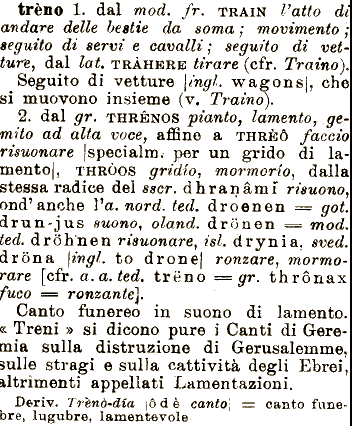 trèno 1. dal mod. fr. TRAIN l'atto di
andare delle bestie da soma; movimento;
seguito di servi e cavalli; seguito di vet-
ture, dal lat. TRÀHERE tirare (cfr. Traino).
Seguito di vetture |ingl. wagons|, che
si muovono insieme (v. Traino).
2. dal gr. THRÊNOS pianto, lamento, ge-
mito ad alta voce, affine a THRÈÔ faccio
risuonare |specialm. per un grido di la-
mento|, THRÒOS gridìo, mormorio, dalla
stessa radice del sscr. dhraṇâmi risuono,
ond'anche l'a. nord. ted. droenen = got.
drun-jus suono, oland. drönen = mod.
ted. dröhnen risuonare, isl. drynia, sved.
dröna |ingl. to drone| ronzare, mormo-
rare [cfr. a. a. ted. trëno = gr. thrônax
fuco = ronzante].
Canto funereo in suono di lamento.
« Treni » si dicono pure i Canti di Gere-
mia sulla distruzione di Gerusalemme,
sulle stragi e sulla cattività degli Ebrei,
altrimenti appellati Lamentazioni.
Deriv. Trèno-dìa |ôdè canto| = canto fune-
bre, lugubre, lamentevole